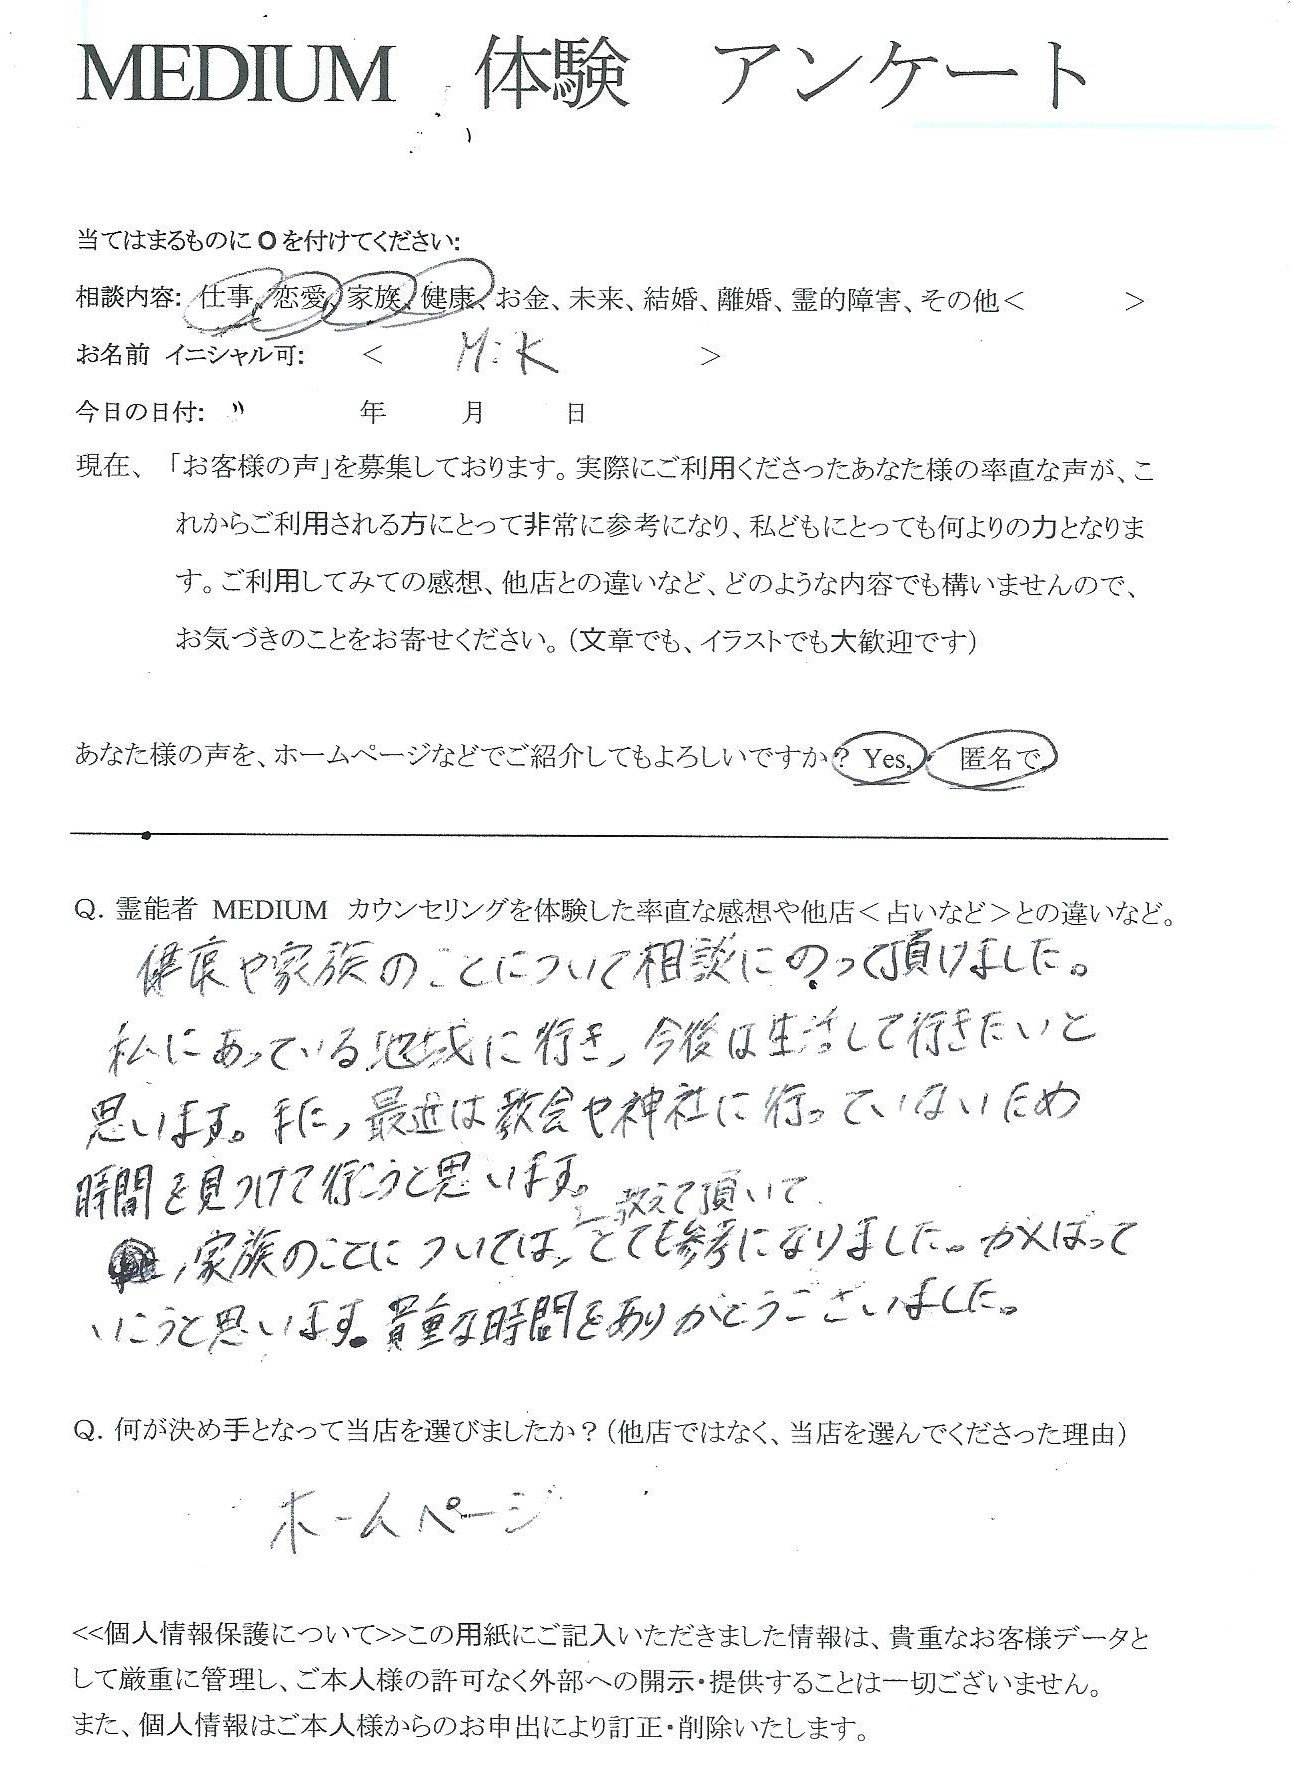 MEDIUM 体験 アンケート
当てはまるものにOを付けてください:
相談内容: 仕事、恋愛、家族、健康、お金、未来、結婚、離婚、霊的障害、その他< >
お名前 イニシャル可: < M:K >
今日の日付: 〃 年 月 日
現在、「お客様の声」を募集しております。実際にご利用くださったあなた様の率直な声が、こ
れからご利用される方にとって非常に参考になり、私どもにとっても何よりの力となりま
す。ご利用してみての感想、他店との違いなど、どのような内容でも構いませんので、
お気づきのことをお寄せください。(文章でも、イラストでも大歓迎です)
あなた様の声を、ホームページなどでご紹介してもよろしいですか? Yes, 匿名で
Q. 霊能者 MEDIUM カウンセリングを体験した率直な感想や他店<占いなど>との違いなど。
健康や家族のことについて相談にのって頂けました。
私にあっている地域に行き、今後は生活して行きたいと
思います。また、最近は教会や神社に行っていないため
時間を見つけて行こうと思います。
教えて頂いて
、家族のことについては、とても参考になりました。がんばって
いこうと思います。貴重な時間をありがとうございました。
Q. 何が決め手となって当店を選びましたか?(他店ではなく、当店を選んでくださった理由)
ホームページ
<<個人情報保護について>>この用紙にご記入いただきました情報は、貴重なお客様データと
して厳重に管理し、ご本人様の許可なく外部への開示・提供することは一切ございません。
また、個人情報はご本人様からのお申出により訂正・削除いたします。